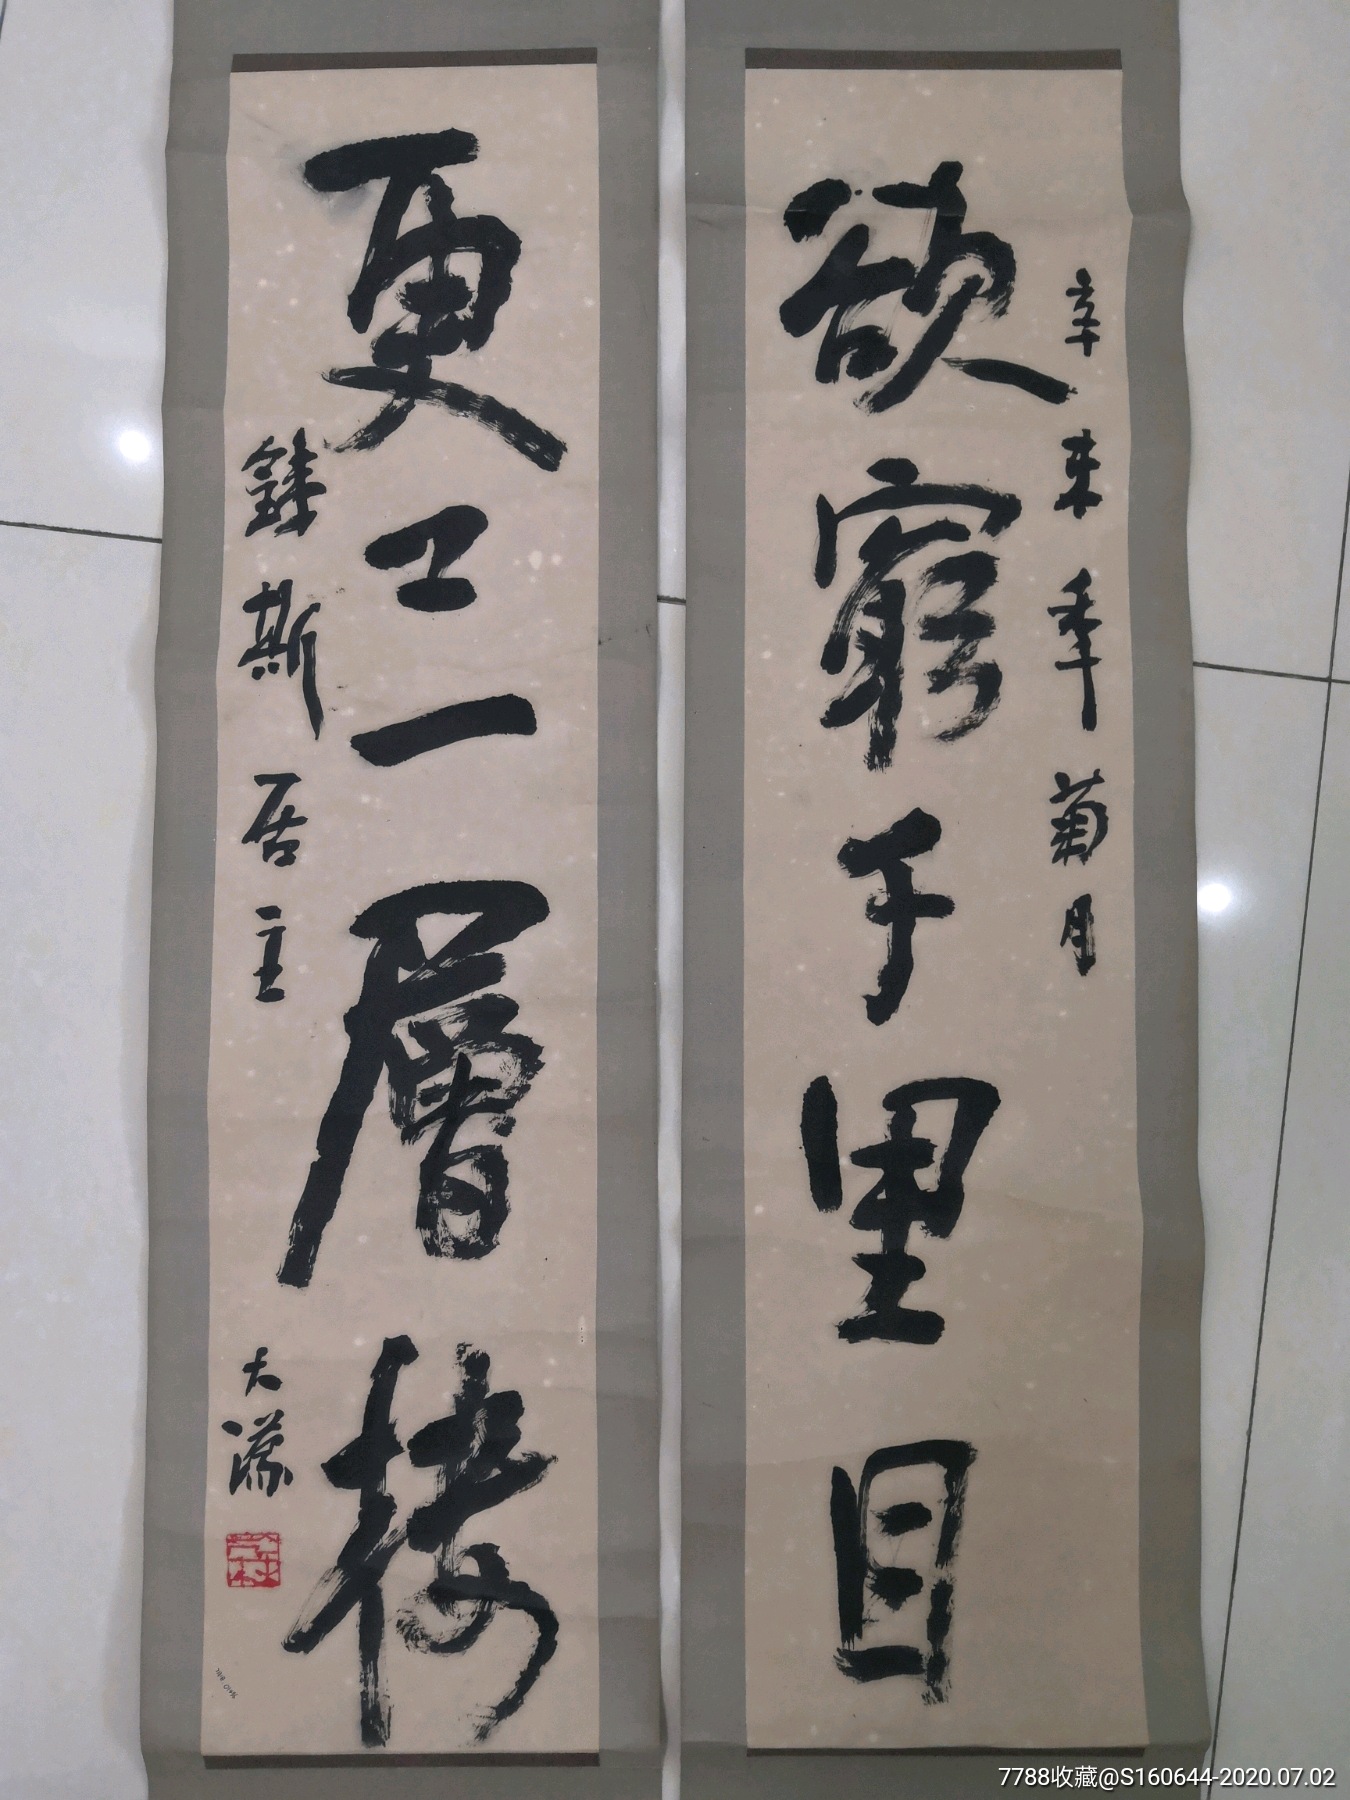 辛未秊菊月
欲窮千里目
更上一層樓
鑄斯居主
大
7788收藏@S160644-2020.07.02